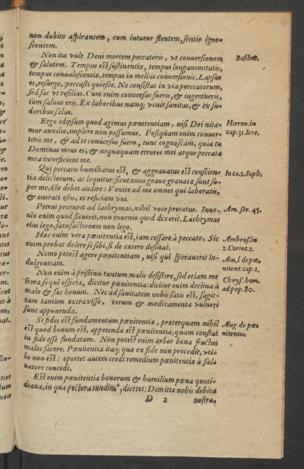 non dubito aspirantem, cum intueor flentem, sentio ignoscentem.
Non ita vult Deus mortem peccatoris, vt conuersionem
& salutem. Tempus est sustinentiæ, tempus longanimitatis,
tempus conualescentiæ, tempus in melius conuersionis. Lapsus
es, resurge, peccasti quiesce. Ne consistas in via peccatorum,
sed fac vt resilias. Cum enim conuersus fueris, & ingemueris,
tum saluus eris. Ex laboribus
doribus salus.
Ergo idipsum quod agimus pœnitentiam, nisi Dei nitamur
auxilio, implere non possumus. Postquam enim conuerteris
me, & ad te conuersus fuero, tunc cognoscam, quia tu
Dominus meus es, & nequaquam errores mei atque peccata
mea interficient me.
Qui peccans humiliatus est, & aggrauatus est conscientia
delictorum, ac loquitur sicut onus graue grauata sunt super
me, ille debet audire: Venite ad me omnes qui laboratis,
& onerati estis, et reficiam vos.
Petrus prorupit ad lachrymas, nihil voce precatus. Inuenio
enim quod fleuerit, non inuenio quid dixerit, Lachrymas
eius lego, satisfactionem non lego.
Hæc enim vera pœnitentia est, iam cessare à peccato. Sic
enim probat dolere se sibi, si de cætero desinat.
Nemo potest agere pœnitentiam, nisi qui sperauerit Indulgentiam.
Non enim à pristinis tantum malis desistere, sed etiam meliora
si qui efficiat, dicitur pœnitentia: dicitur enim declina à
malo & fac bonum. Nec ad sanitatem nobis satis est, sagittam
tantum extraxisse, verum & medicamenta vulneri
sunt apponenda.
Si fides est fundamentum pœnitentiæ, præterquam nihil
est quod bonum sit, appetenda est pœnitentia, quam constat
in fide esse fundatam. Non potest enim arbor bona fructus
malos facere. Pœnitentia itaq; quæ ex fide non procedit, vtilis
non est: oportet autem credi remedium pœnitentiæ à saluatore
concedi.
Est enim pœnitentia bonorum & humilium pœna quotidiana,
in qua pectora tundim', dicetes: Dimitte nobis debita
D 2 nostra,
Basilius.
Hieron. in
cap. 31. Iere.
In ca. 2. Soph.
Am. ser. 45.
Ambros. in
2. Corint. 2.
Am. l. de pœ
nitent. cap. 1.
Chrys. hom.
ad pop. 80.
Aug. de pœ
nitentia.